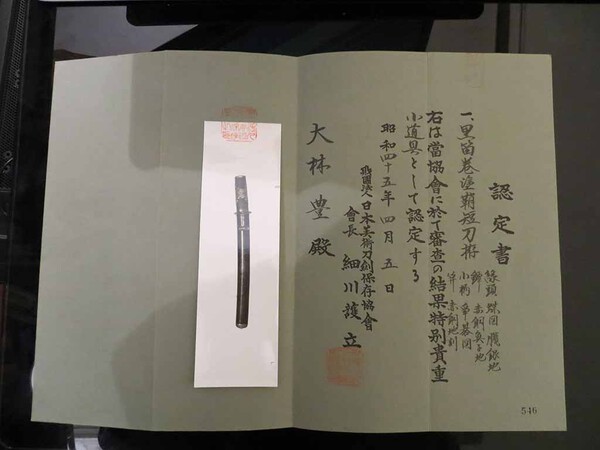 認定書
一、黒笛巻塗鞘短刀拵
縁頭
朧銀地
鐔 赤銅魚子地
小柄
赤銅地
右は當協會に於て審査の結果特別貴重
小道具として認定する
昭和四十五年四月五日
財團法人日本美術刀劍保存協會
會長 細川護立
大林豊殿
546